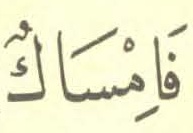 فَاِمْسَاكٌ